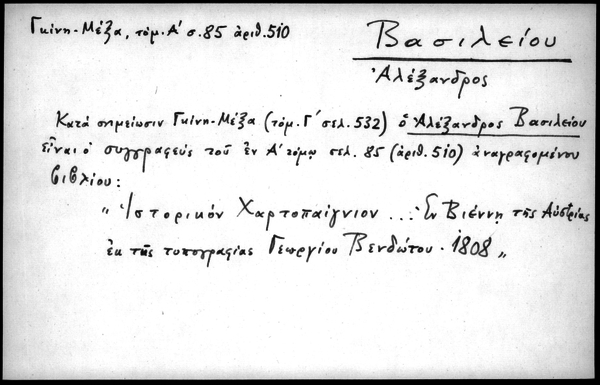 Γκίνη-Μέξα, τόμ. Α' σ. 85 ἀριθ. 510
Βασιλείου
Ἀλέξανδρος
Κατά σημείωσιν Γκίνη-Μέξα (τόμ. Γ' σελ. 532) ὁ Ἀλέξανδρος Βασιλείου
εἶναι ὁ συγγραφεύς τοῦ ἐν Α' τόμῳ σελ. 85 (ἀριθ. 510) ἀναγραφομένου
βιβλίου:
"Ἱστορικόν Χαρτοπαίγνιον ... Ἐν Βιέννῃ τῆς Αὐστρίας
ἐκ τῆς τυπογραφίας Γεωργίου Βενδώτου. 1808"